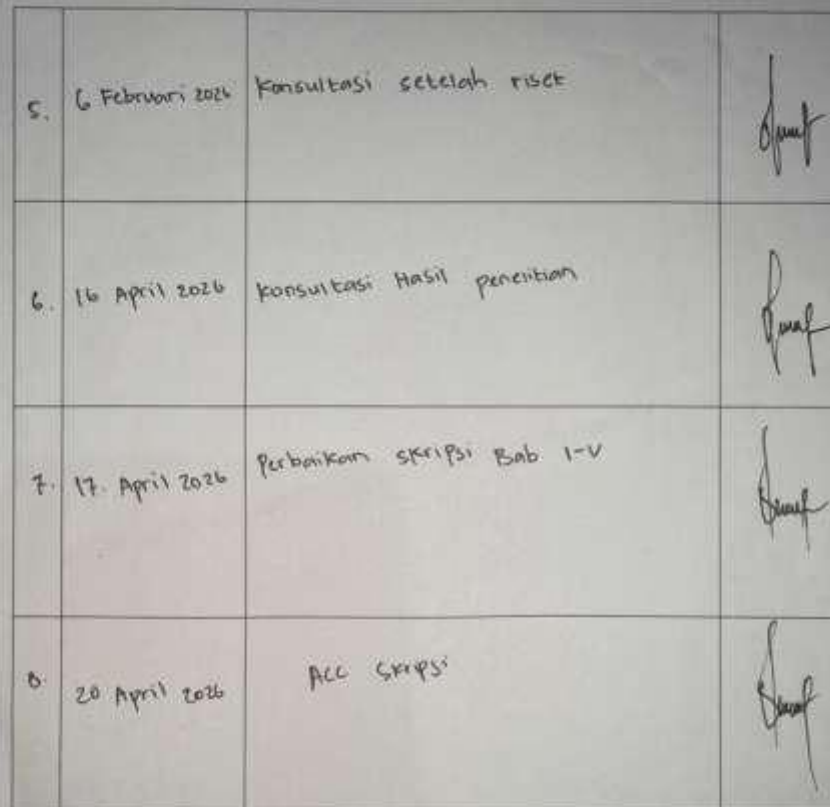 5. 6 Februari 2026 Konsultasi setelah riset
6. 16 April 2026 Konsultasi Hasil penelitian
7. 17. April 2026 Perbaikan skripsi Bab 1-V
8. 20 April 2026 ACC skripsi